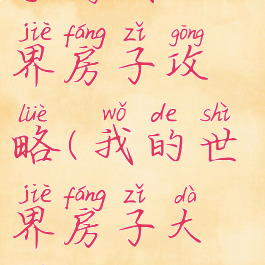 jiè fáng zǐ gōng
界房子攻
lüè wǒ de shì
略(我的世
jiè fáng zǐ dà
界房子大